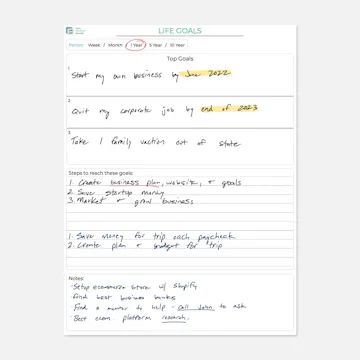 LIFE GOALS
Period: Week / Month / 1 Year / 5 Year / 10 Year
Top Goals
1
Start my own business by June 2022
2
Quit my corporate job by end of 2023
3
Take 1 family vaction out of state
Steps to reach these goals:
1. Create business plan, website, & goals
2. Save startup money
3. Market & grow business
1. Save money for trip each paycheck
2. Create plan & budget for trip
Notes:
- Setup ecommerce store w/ Shopify
- find best business banks
- Find a mentor to help - call John to ask
- Best ecom platform research.